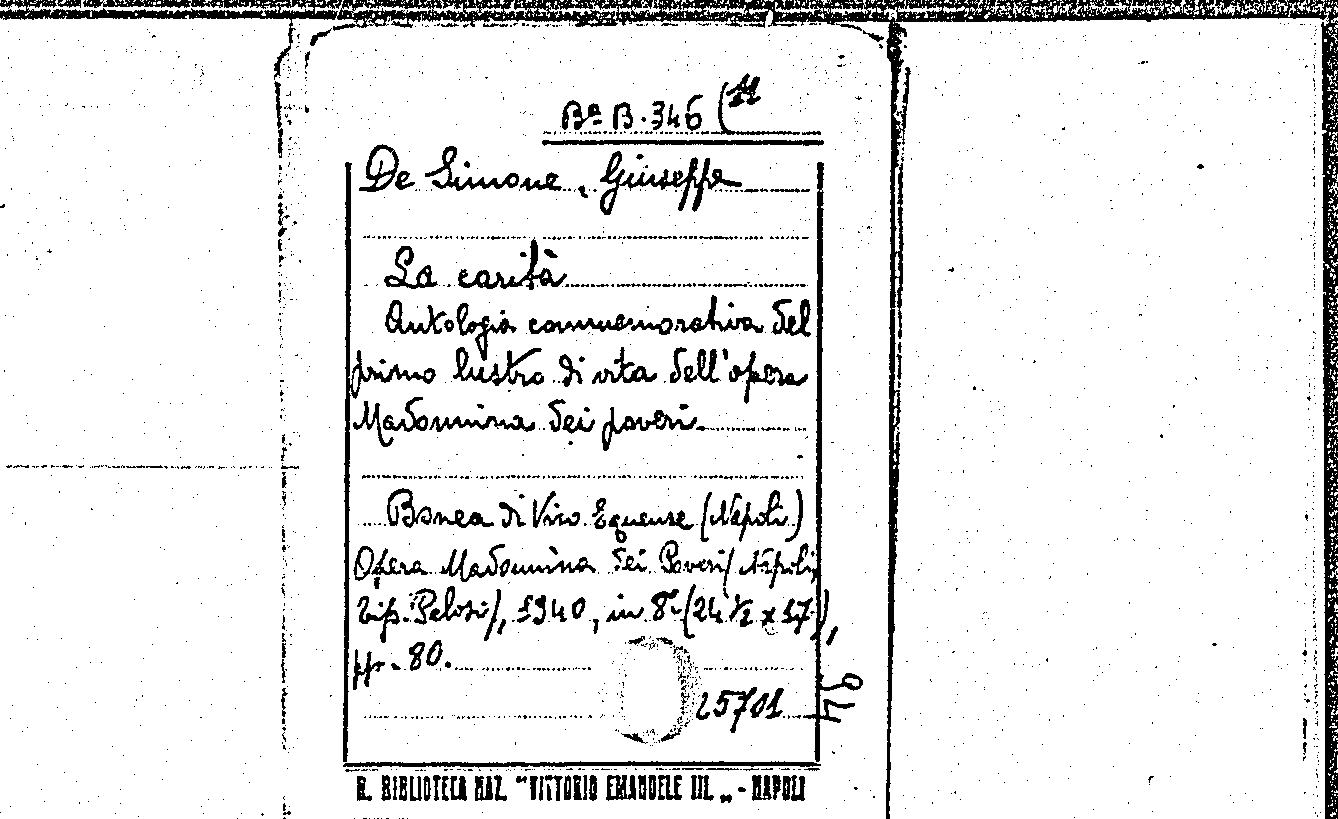 Bª B. 346 (11
De Simone, Giuseppe
La carità
Antologia commemorativa del
primo lustro di vita dell'opera
Madonnina dei poveri.
Bonea di Vico Equense (Napoli)
Opera Madonnina dei Poveri (Napoli,
Tip. Pelosi), 1940, in 8° (24 ½ x 17),
pp. 80.
25701
R. BIBLIOTECA NAZ. "VITTORIO EMANUELE III„ - NAPOLI